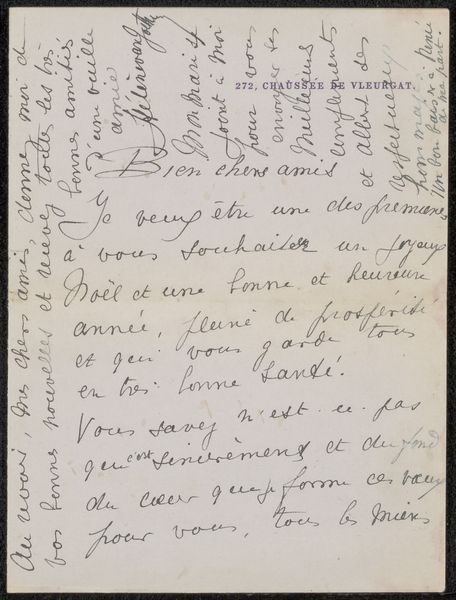 272, CHAUSSÉE DE VLEURGAT.
Bien chers amis
Je veux être une des premières
à vous souhaiter un joyeux
Noël et une bonne et heureuse
année, pleine de prospérité
et qui vous garde tous
en très bonne santé.
Vous savez n'est-ce pas
que c'est sincèrement et du fond
du cœur que je forme ces vœux
pour vous, tous les miens
Au revoir, mes chers amis, donnez moi de
vos bonnes nouvelles et recevez toutes les très
bonnes amitiés
d'une vieille
amie
Mon mari se
joint à moi
pour vous
envoyer ses
meilleurs
compliments
et Albert ses
respectueux
hommages.
Un bon baiser à René
de ma part.